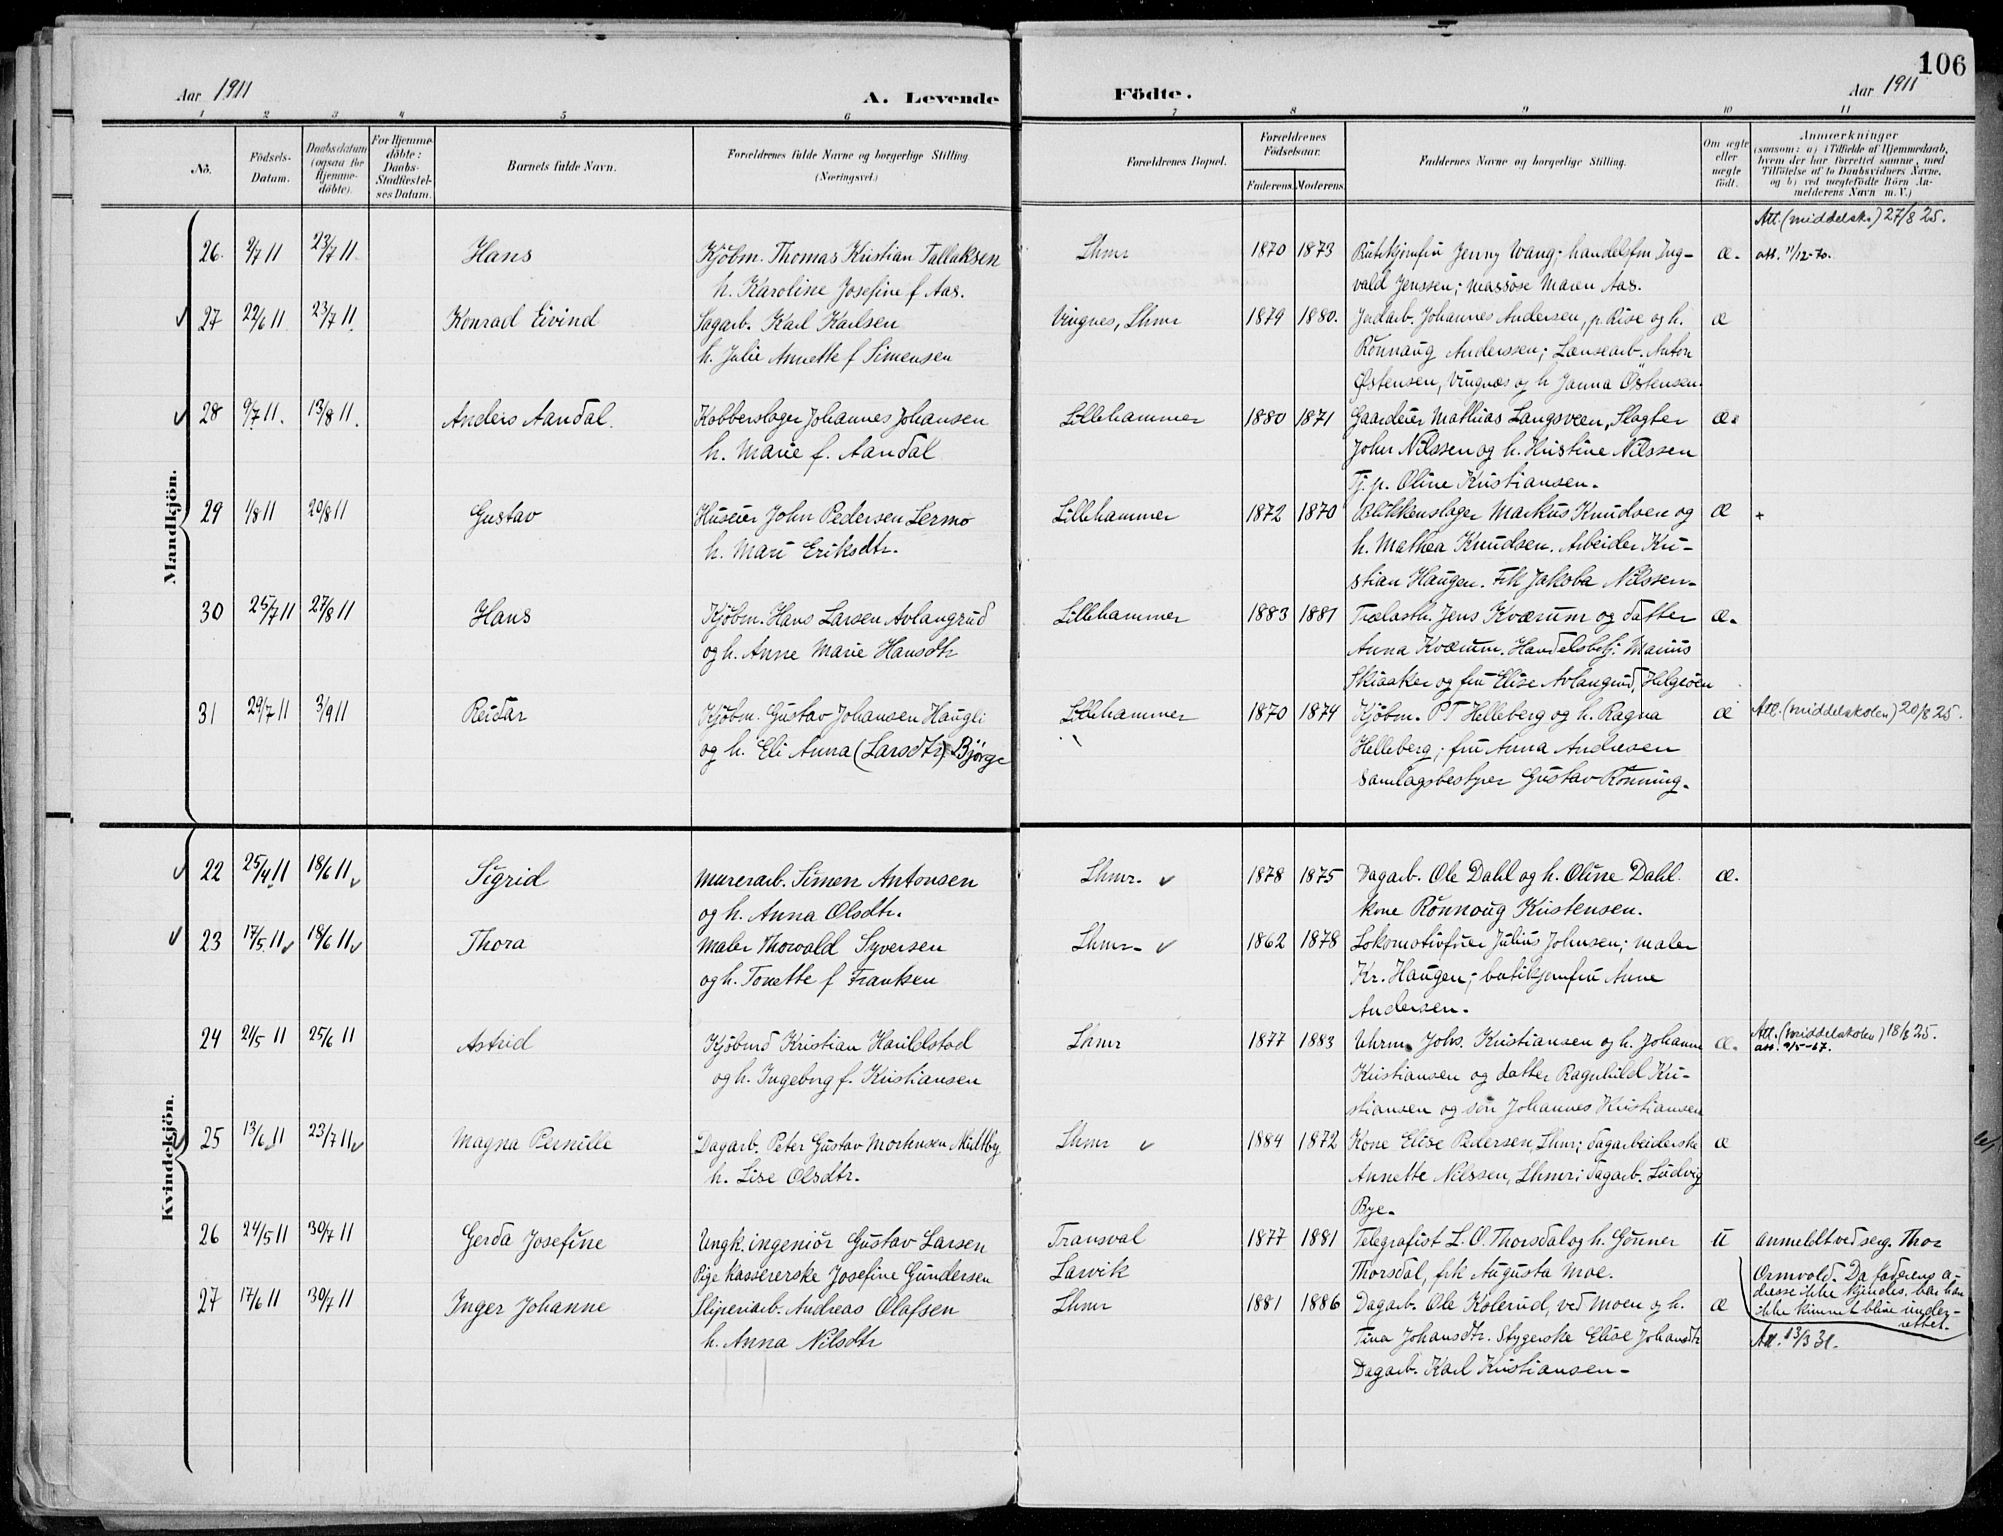 106
Aar 1911
A. Levende
Födte.
Aar 1911
1 2 3 4 5 6 7 8 9 10 11
No.
Födsels-Datum.
Daabsdatum (ogsaa for Hjemmedöbte).
For Hjemmedöbte: Daabs-Stadfæstelses Datum.
Barnets fulde Navn.
Forældrenes fulde Navne og borgerlige Stilling (Næringsvei.)
Forældrenes Bopæl.
Forældrenes Födselsaar.
Faderens. Moderens.
Faddernes Navne og borgerlige Stilling.
Om ægte eller uægte födt.
Anmærkninger
(saasom: a) i Tilfælde af Hjemmedaab, hvem der har forrettet samme, med Tilföielse af to Daabsvidners Navne, og b) ved uægtefödte Börn Anmelderens Navn m. V.)
Mandkjön.
Att. (middelsk.) 27/8 25.
26. 2/7 11 23/7 11 Hans Kjøbm. Thomas Kristian Tallaksen Lhmr 1870 1873 Butikjomfru Jenny Wang; handelsfm Ing- æ. att. 11/12-70.
h. Karoline Josefine f. Aas. vald Jenssen; massøse Maren Aas.
27 22/6 11 23/7 11 Konrad Eivind Sagarb. Karl Karlsen Vingnes, Lhmr 1879 1880. Jordarb. Johannes Andersen, p. Rise og h. æ
h. Julie Annette f Simensen Rönnaug Anderssen; Lænsearb. Anton
Østensen, Vingnæs og h Janna Östensen.
28 9/7 11. 13/8 11. Anders Aandal. Kobberslager Johannes Johansen Lillehammer 1880 1871 Gaardeier Mathias Langsveen, Slagter æ.
h. Marie f. Aandal John Nilssen og h. Kristine Nilssen
Tj. p. Oline Kristiansen.
29 1/8 11 20/8 11 Gustav Huseier John Pedersen Lermo Lillehammer 1872 1870 Blikkenslager Markus Knudsen og æ +
h. Mari Eriksdtr. h. Mathea Knudsen. Arbeider Kri-
stian Haugen. Frk Jakoba Nilssen.
30 25/7 11 27/8 11 Hans Kjøbm. Hans Larsen Avlangrud Lillehammer 1883 1881 Trælasth. Jens Kværum og datter æ.
og h. Anne Marie Hansdtr Anna Kværum. Handelsbetj. Marius
Skiaaker og fru Elise Avlangrud, Helgøen
31 29/7 11 3/9 11 Reidar Kjöbm. Gustav Johansen Haugli Lillehammer 1870 1874 Kjøbm. P T Helleberg og h. Ragna æ Att. (middelskolen) 20/8 25.
og h. Eli Anna (Larsdtr) f. Bjørge Helleberg; fru Anna Andresen
Samlagsbestyrer Gustav Rönning.
Kvindekjön.
22 25/4 11 18/6 11 Sigrid Murerarb. Simen Antonsen Lhmr. 1878 1875 Dagarb. Ole Dahl og h. Oline Dahl. æ.
og h. Anna Olsdtr. kone Rönnoug Kristensen.
23 17/5 11 18/6 11 Thora Maler Thorvald Syversen Lhmr. 1862 1878 Lokomotivfører Julius Johnsen; maler
og h. Tonette f Frantsen Kr. Haugen; butikjomfru Anne
Andersen.
24 21/5 11 25/6 11 Astrid Kjöbmd Kristian Harildstad Lhmr 1877 1883 Uhrm. Johs. Kristiansen og h. Johanne æ. Att. (middelskolen) 18/8 25.
og h. Ingeborg f. Kristiansen Kristiansen og datter Ragnhild Kri- att. 9/5-67.
stiansen og sön Johannes Kristiansen
25 13/6 11 23/7 11 Magna Pernille Dagarb. Peter Gustav Mortensen Multby Lhmr 1884 1872 Kone Elise Pedersen, Lhmr; dagarbeiderske æ
h. Lise Olsdtr. Annette Nilssen, Lhmr; dagarb. Ludvig
Bye.
26 24/5 11 30/7 11 Gerda Josefine Ungk. ingeniör Gustav Larsen Transval 1877 1881 Telegrafist L. O. Thorsdal og h. Gunner u anmeldt ved seng. Thor
Pige kassererske Josefine Gundersen Larvik Thorsdal, frk Augusta Moe. Ormvold. Da faderens a-
dresse ikke kjendes, har han
ikke kunnet blive under-
rettet.
27 17/6 11 30/7 11 Inger Johanne Sliperiarb. Andreas Olafsen Lhmr 1881 1886 Dagarb. Ole Kolerud, ved Moen og h. æ
h. Anna Nilsdtr Tina Johansdtr. Strygerske Elise Johansdtr Att. 13/3 31.
Dagarb. Karl Kristiansen.